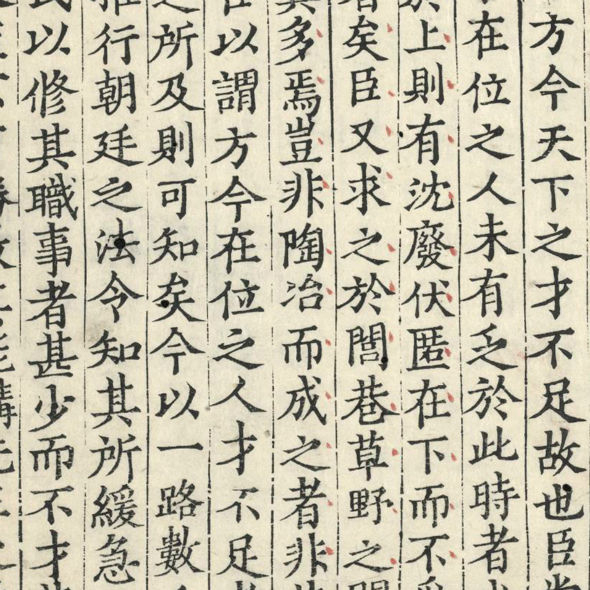 方今天下之才不足故也臣
在位之人未有乏於此時者
上則有沈廢伏匿在下而不
矣臣又求之於閭巷草野之
多焉豈非陶冶而成之者非
以謂方今在位之人才不足
所及則可知矣今以一路數
行朝廷之法令知其所緩急
以修其職事者甚少而不才